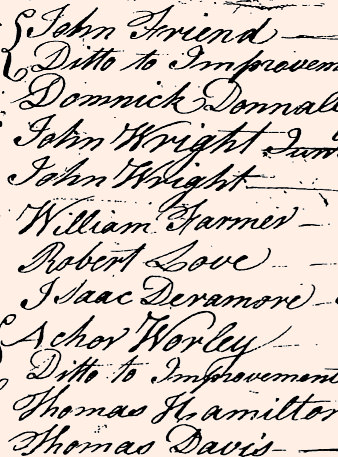 John Friend
Ditto to Improvem
Domnick Donnall
John Wright Jun
John Wright
William Farmer
Robert Love
Isaac Deramore
Achor Worley
Ditto to Improvement
Thomas Hamilton
Thomas Davis